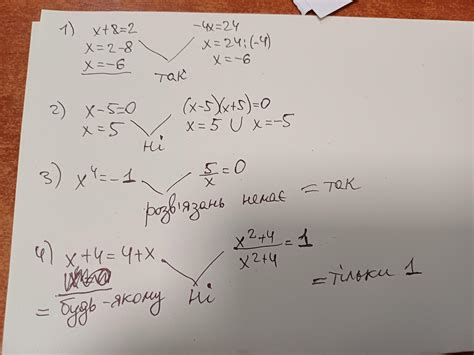 1) x+8=2 -4x=24
x=2-8 x=24:(-4)
x=-6 x=-6
так
2) x-5=0 (x-5)(x+5)=0
x=5 x=5 U x=-5
Ні
3) x⁴=-1 5/x=0
розв'язань немає = так
4) x+4=4+x (x²+4)/(x²+4)=1
= будь-якому Ні = тільки 1